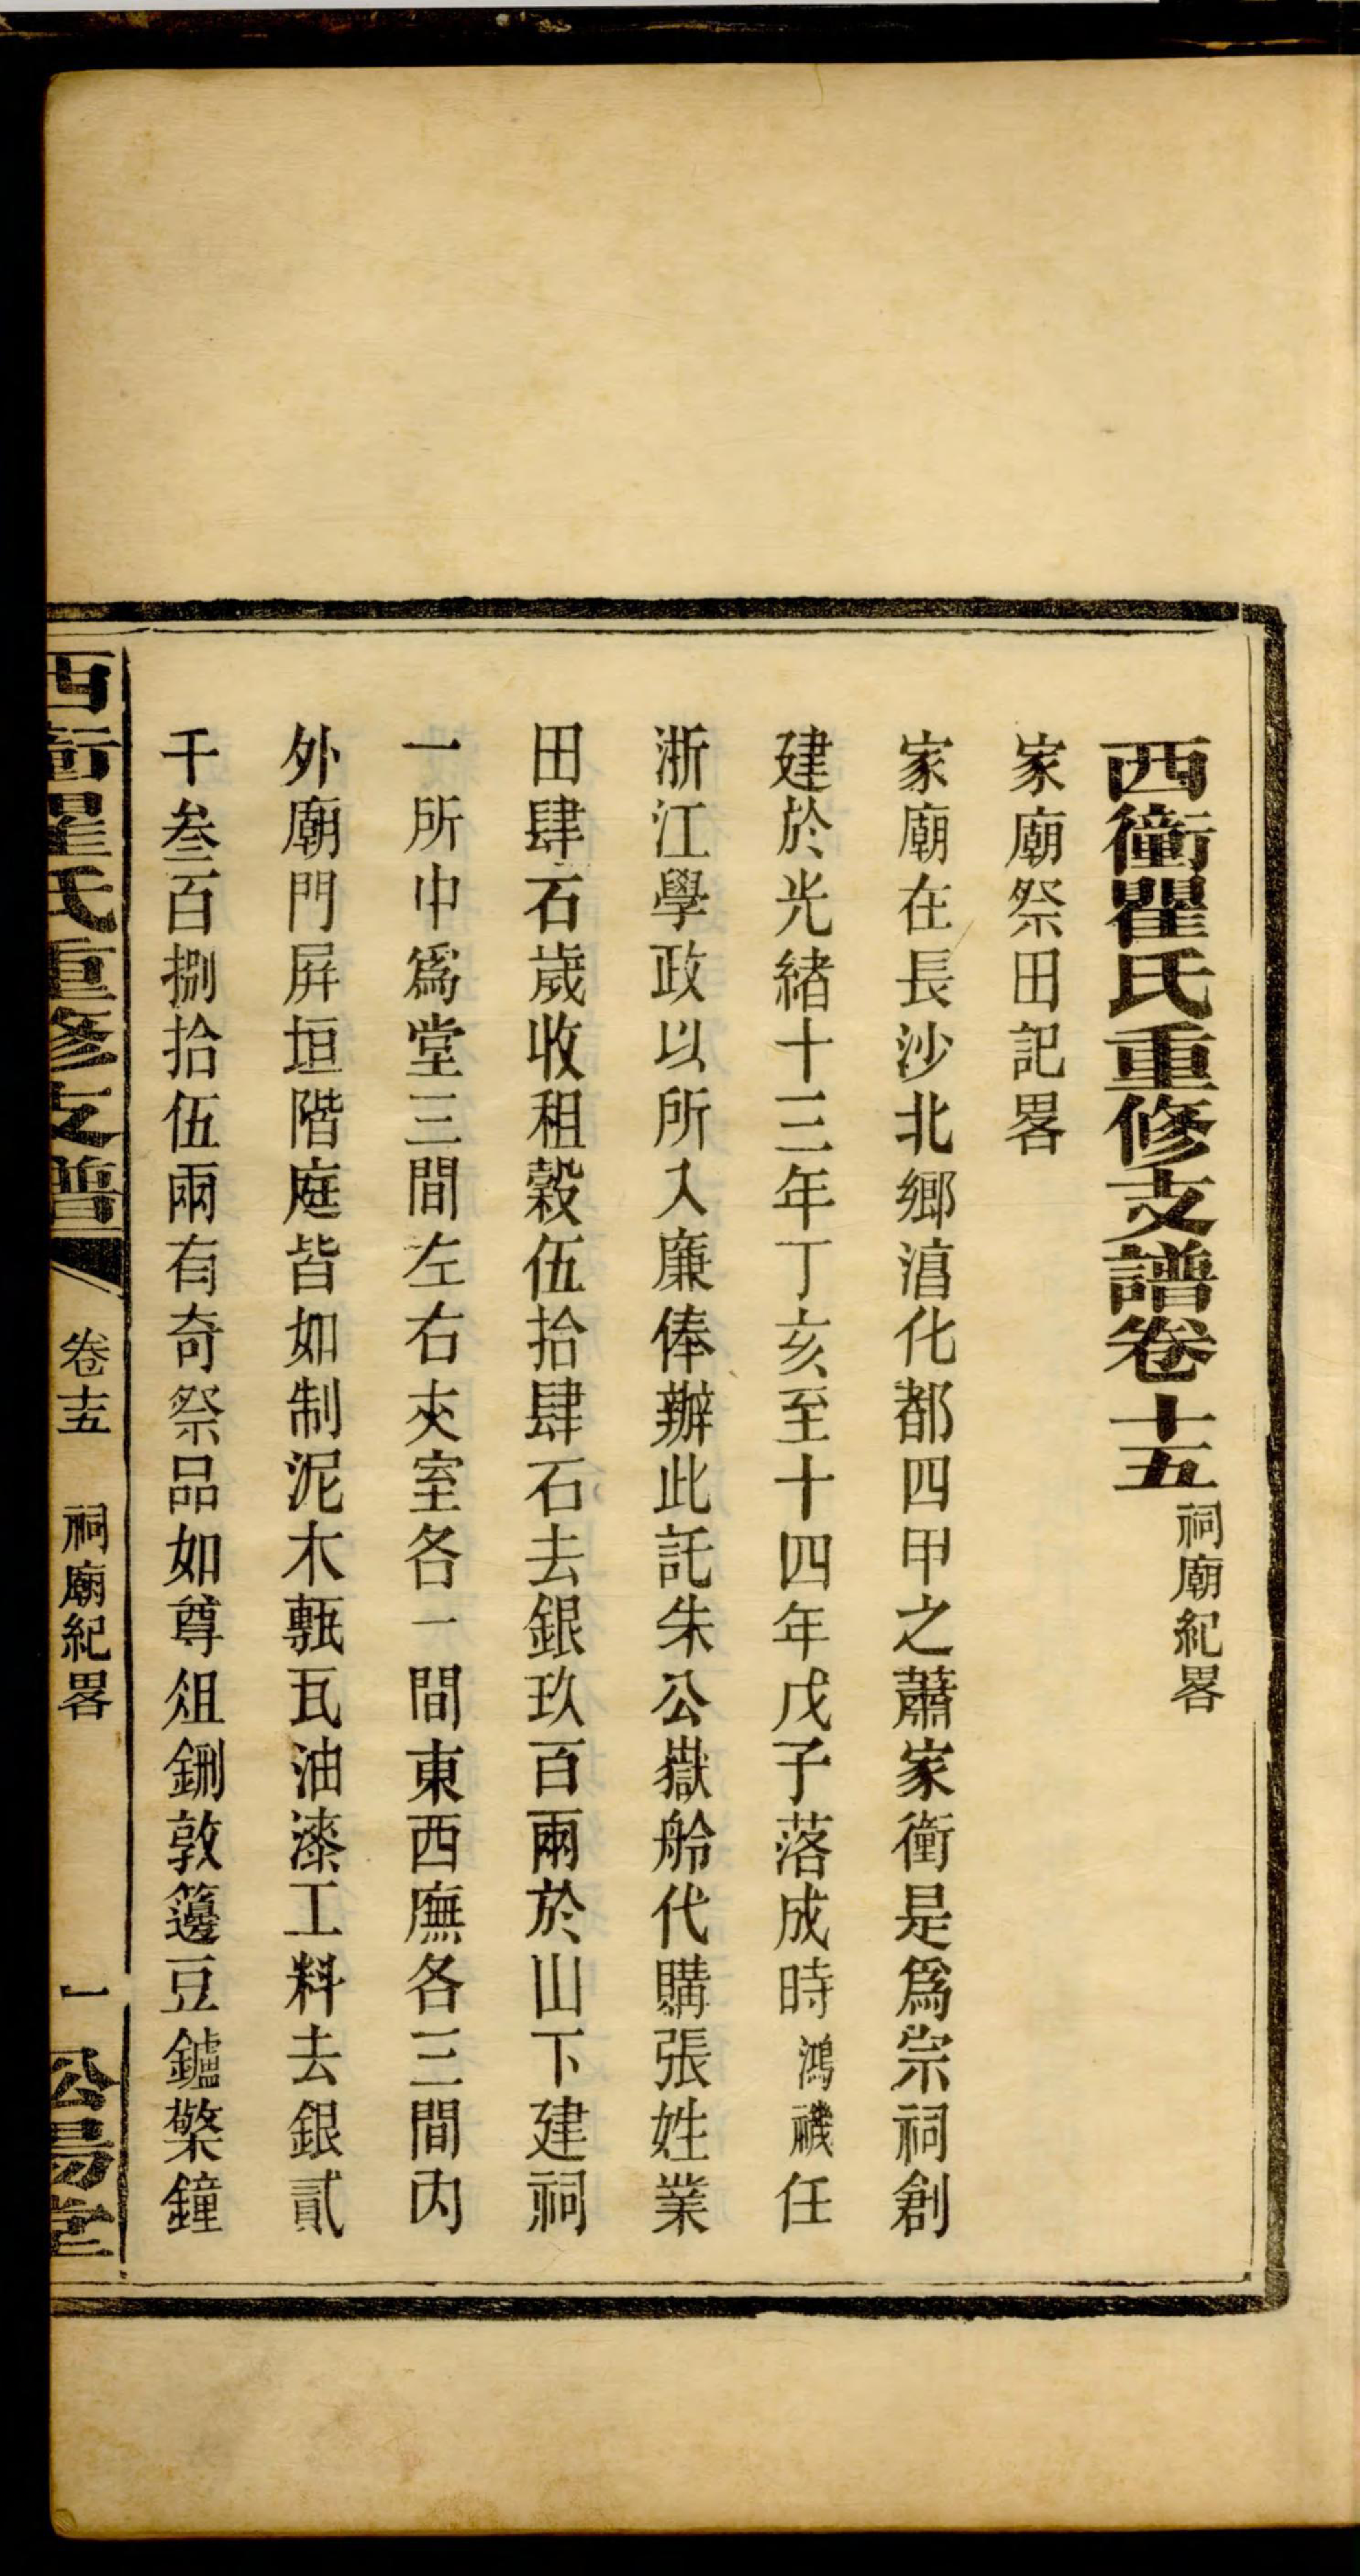 西衝瞿氏重修支譜卷十五 祠廟紀畧
家廟祭田記畧
家廟在長沙北鄉淸化都四甲之蕭家衝是爲宗祠創
建於光緒十三年丁亥至十四年戊子落成時鴻禨任
浙江學政以所入廉俸辦此託朱公嶽舲代購張姓業
田肆石歲收租穀伍拾肆石去銀玖百兩於山下建祠
一所中爲堂三間左右夾室各一間東西廡各三間內
外廟門屛垣階庭皆如制泥木甎瓦油漆工料去銀貳
千叁百捌拾伍兩有奇祭品如尊俎鉶敦籩豆鑪檠鐘
西衝瞿氏重修支譜 卷十五 祠廟紀畧 一 松陽堂